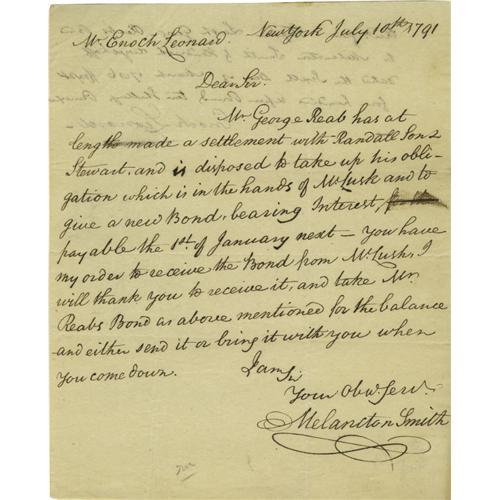 Mr. Enoch Leonard. New York July 10th 1791
Dear Sir.
Mr. George Reab has at
length made a settlement with Randall Son &
Stewart, and is disposed to take up his obli-
gation which is in the hands of McLusk and to
give a new Bond bearing Interest,
payable the 1st. of January next — You have
my order to receive the Bond from McLusk, I
will thank you to receive it, and take Mr.
Reabs Bond as above mentioned for the balance
and either send it or bring it with you when
you come down.
I am Sir
Your Obt. Serv.
Melancton Smith